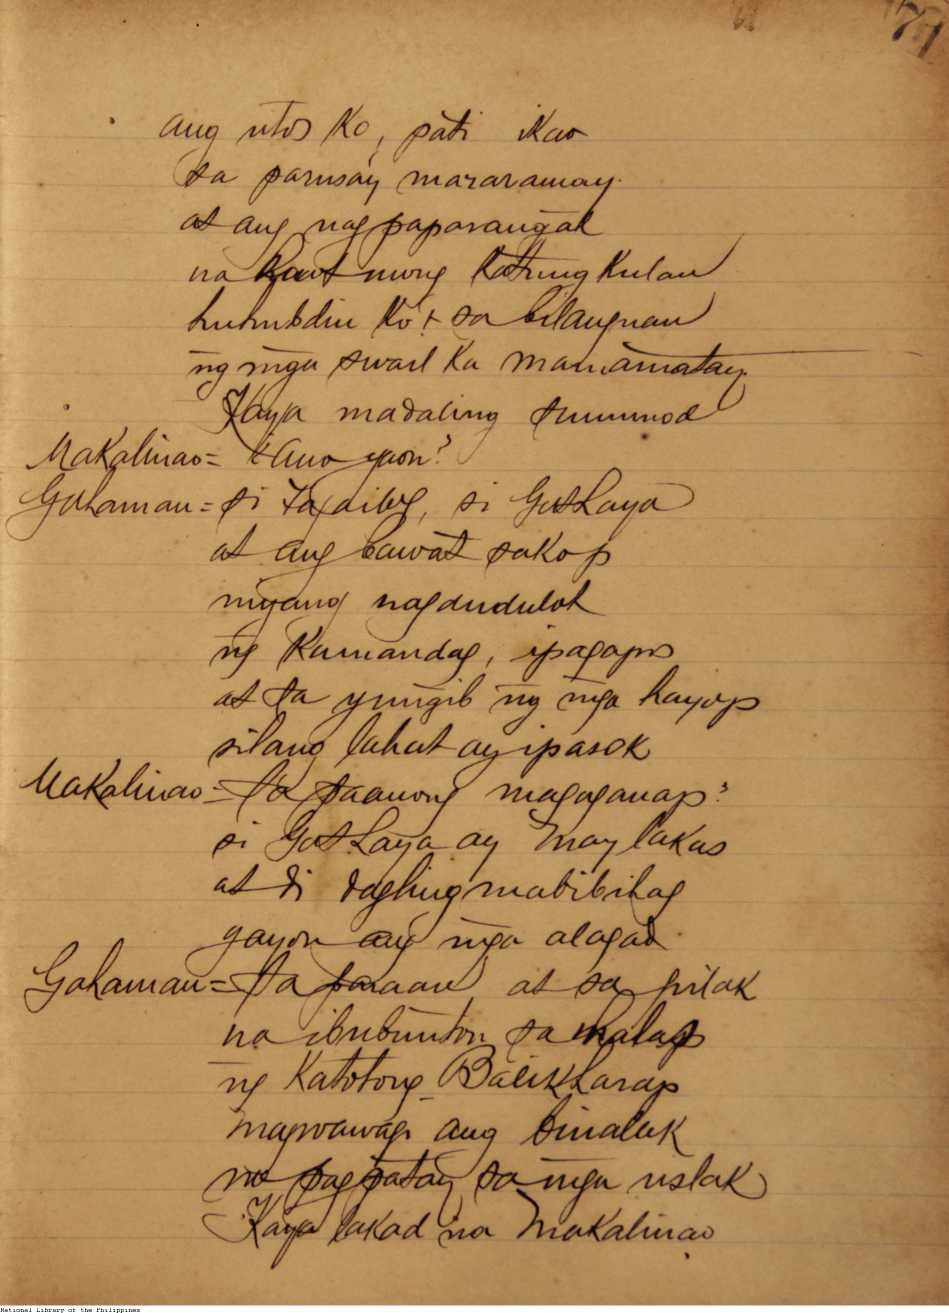 71
ang utos ko, pati ikao
sa parusa'y mararamay
at ang nagpaparangal
na bawt mong katungkulan
huhubdin ko't sa bilanguan
ng̃ mg̃a swail ka mamamatay.
Kaya madaling sumunod
Makalinao = ¿Ano yaon?
Gahaman = si Tagaibig, si Gat Laya
at ang bawat sakop
niyang nagdudulot
ng̃ kamandag, ipagapos
at sa yung̃ib ng̃ mg̃a hayop
silang lahat ay ipasok
Makalinao = Sa paanong magaganap?
si Gat Laya ay may lakas
at di dagling mabibihag
gayon ang mg̃a alagad.
Gahaman = Sa paraan at sa pilak
na ibubunton sa harap
ng̃ katotong Balikharap
magwawagi ang binalak
na pagpatay sa mg̃a uslak
Kaya lakad na Makalinao
National Library of the Philippines